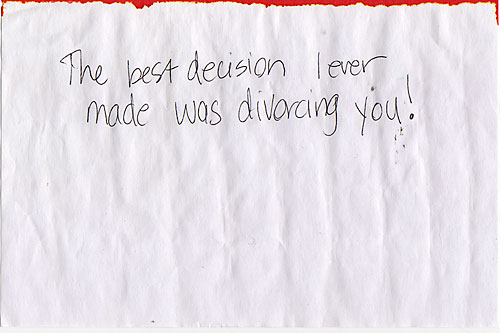 The best decision I ever
made was divorcing you!